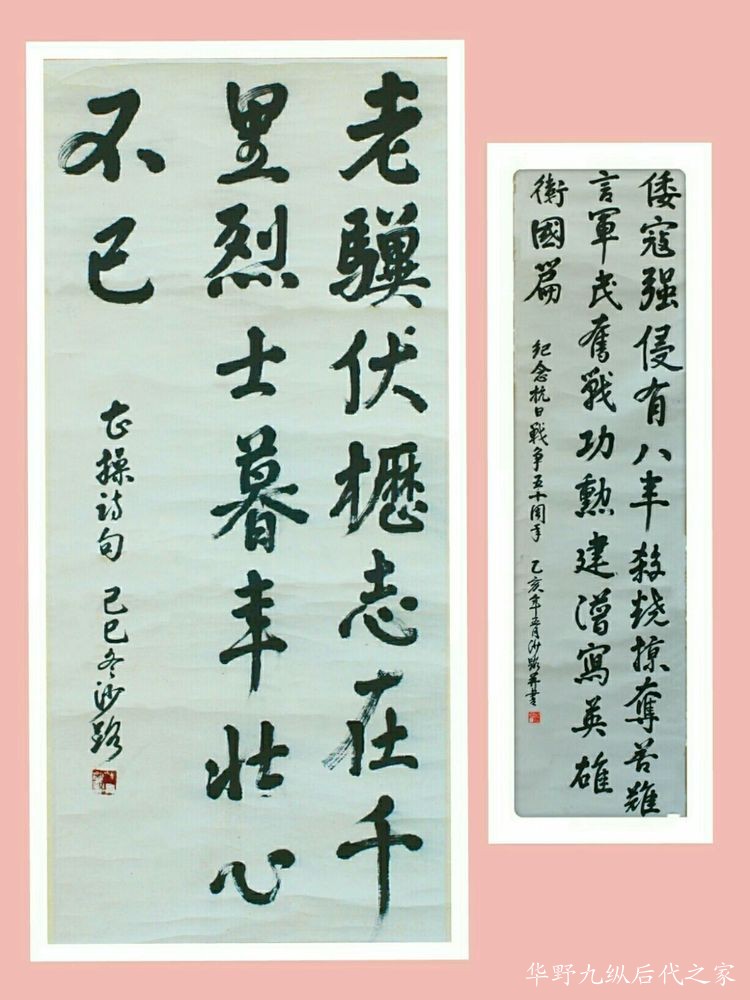 老驥伏櫪志在千
里烈士暮年壮心
不已
曹操诗句 己巳冬沙路
倭寇强侵有八年殺燒掠奪苦難
言軍民奮戰功勳建譜寫英雄
衛國篇
纪念抗日戰争五十周年 乙亥年 月沙路并書
华野九纵后代之家